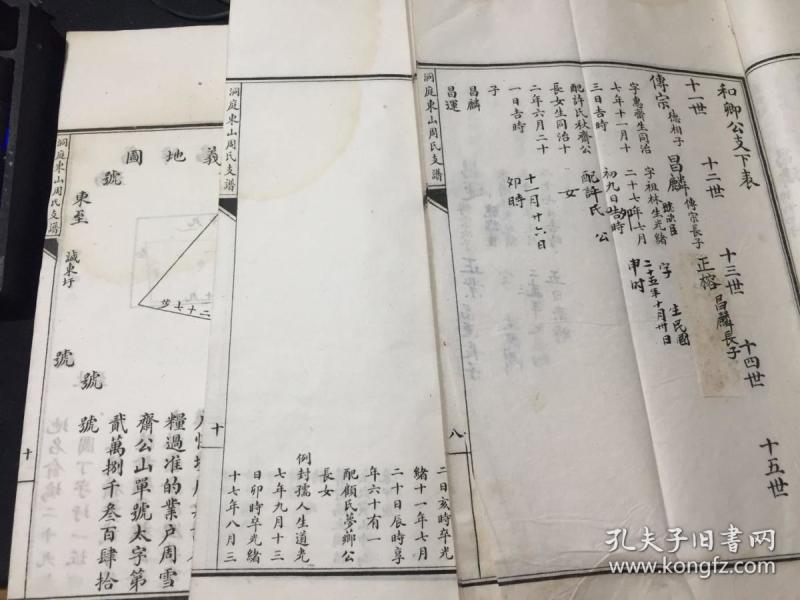 和卿公支下表
十一世
十二世
十三世
十四世
十五世
傳宗 德相子
字惠齋生同治
七年十一月十
三日吉時
配許氏秋齊公
長女生同治十
二年六月二十
一日吉時
子
昌麟
昌運
昌麟 傳宗長子
字祖林生光緒
二十七年七月
初九日吉時
配許氏 公
女
十一月廿六日
卯時
正榕 昌麟長子
字 生民國
二十五年十月卅日
申时
洞庭東山周氏支譜
八
洞庭東山周氏支譜
二日亥時卒光
緒十一年七月
二十日辰時享
年六十有一
配顧氏夢鄉公
長女
例封孺人生道光
七年九月十三
日卯時卒光緒
十七年八月三
十
洞庭東山周氏支譜
義地圖
號
東至
誠東圩
號
號
號
糧過准的業户周雪
齊公山單號太字第
貳萬捌千叁百肆拾
十
孔夫子旧書网
kongfz.com